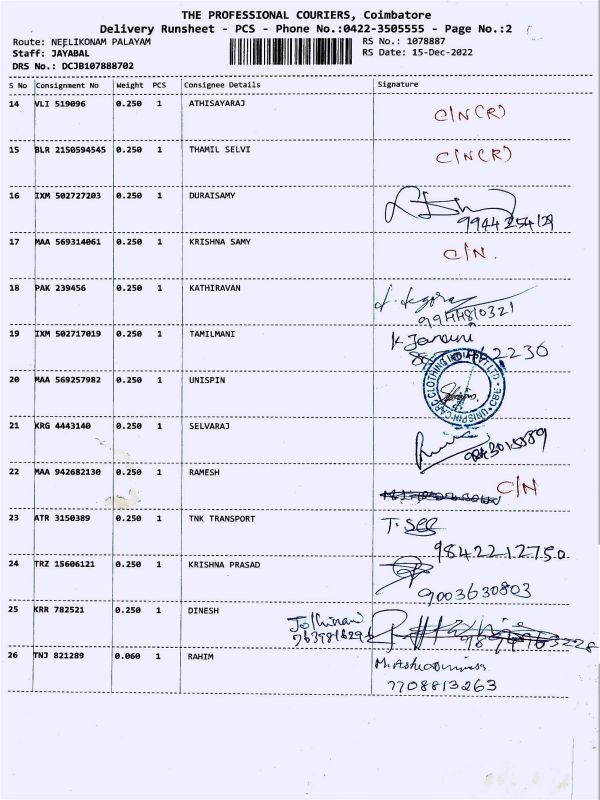 THE PROFESSIONAL COURIERS, Coimbatore
Delivery Runsheet - PCS - Phone No.:0422-3505555 - Page No.:2
Route: NEELIKONAM PALAYAM RS No.: 1078887
Staff: JAYABAL RS Date: 15-Dec-2022
DRS No.: DCJB107888702
S No Consignment No Weight PCS Consignee Details Signature
14 VLI 519096 0.250 1 ATHISAYARAJ C/N(R)
15 BLR 2150594545 0.250 1 THAMIL SELVI C/N(R)
16 IXM 502727203 0.250 1 DURAISAMY
17 MAA 569314061 0.250 1 KRISHNA SAMY C/N.
18 PAK 239456 0.250 1 KATHIRAVAN
9944810321
19 IXM 502717019 0.250 1 TAMILMANI K Janani
2230
20 MAA 569257982 0.250 1 UNISPIN
21 KRG 4443140 0.250 1 SELVARAJ
22 MAA 942682130 0.250 1 RAMESH C/N
23 ATR 3150389 0.250 1 TNK TRANSPORT T. See
9842212750
24 TRZ 15606121 0.250 1 KRISHNA PRASAD
9003630803
25 KRR 782521 0.250 1 DINESH
26 TNJ 821289 0.060 1 RAHIM
7708813263